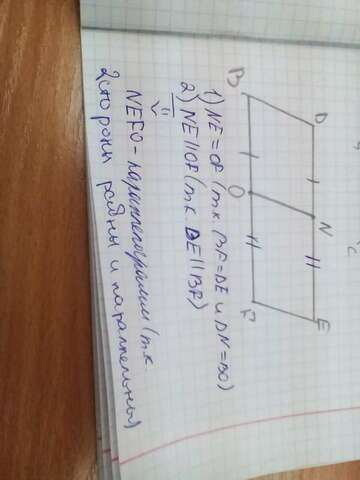 B
D
O
N
F
E
c
1) NE = OF (т.к BF=DE и DN=BO)
2) NE || OF (т.к DE || BF)
NEFO - параллелограмм (т.к
2 стороны равны и параллельны)